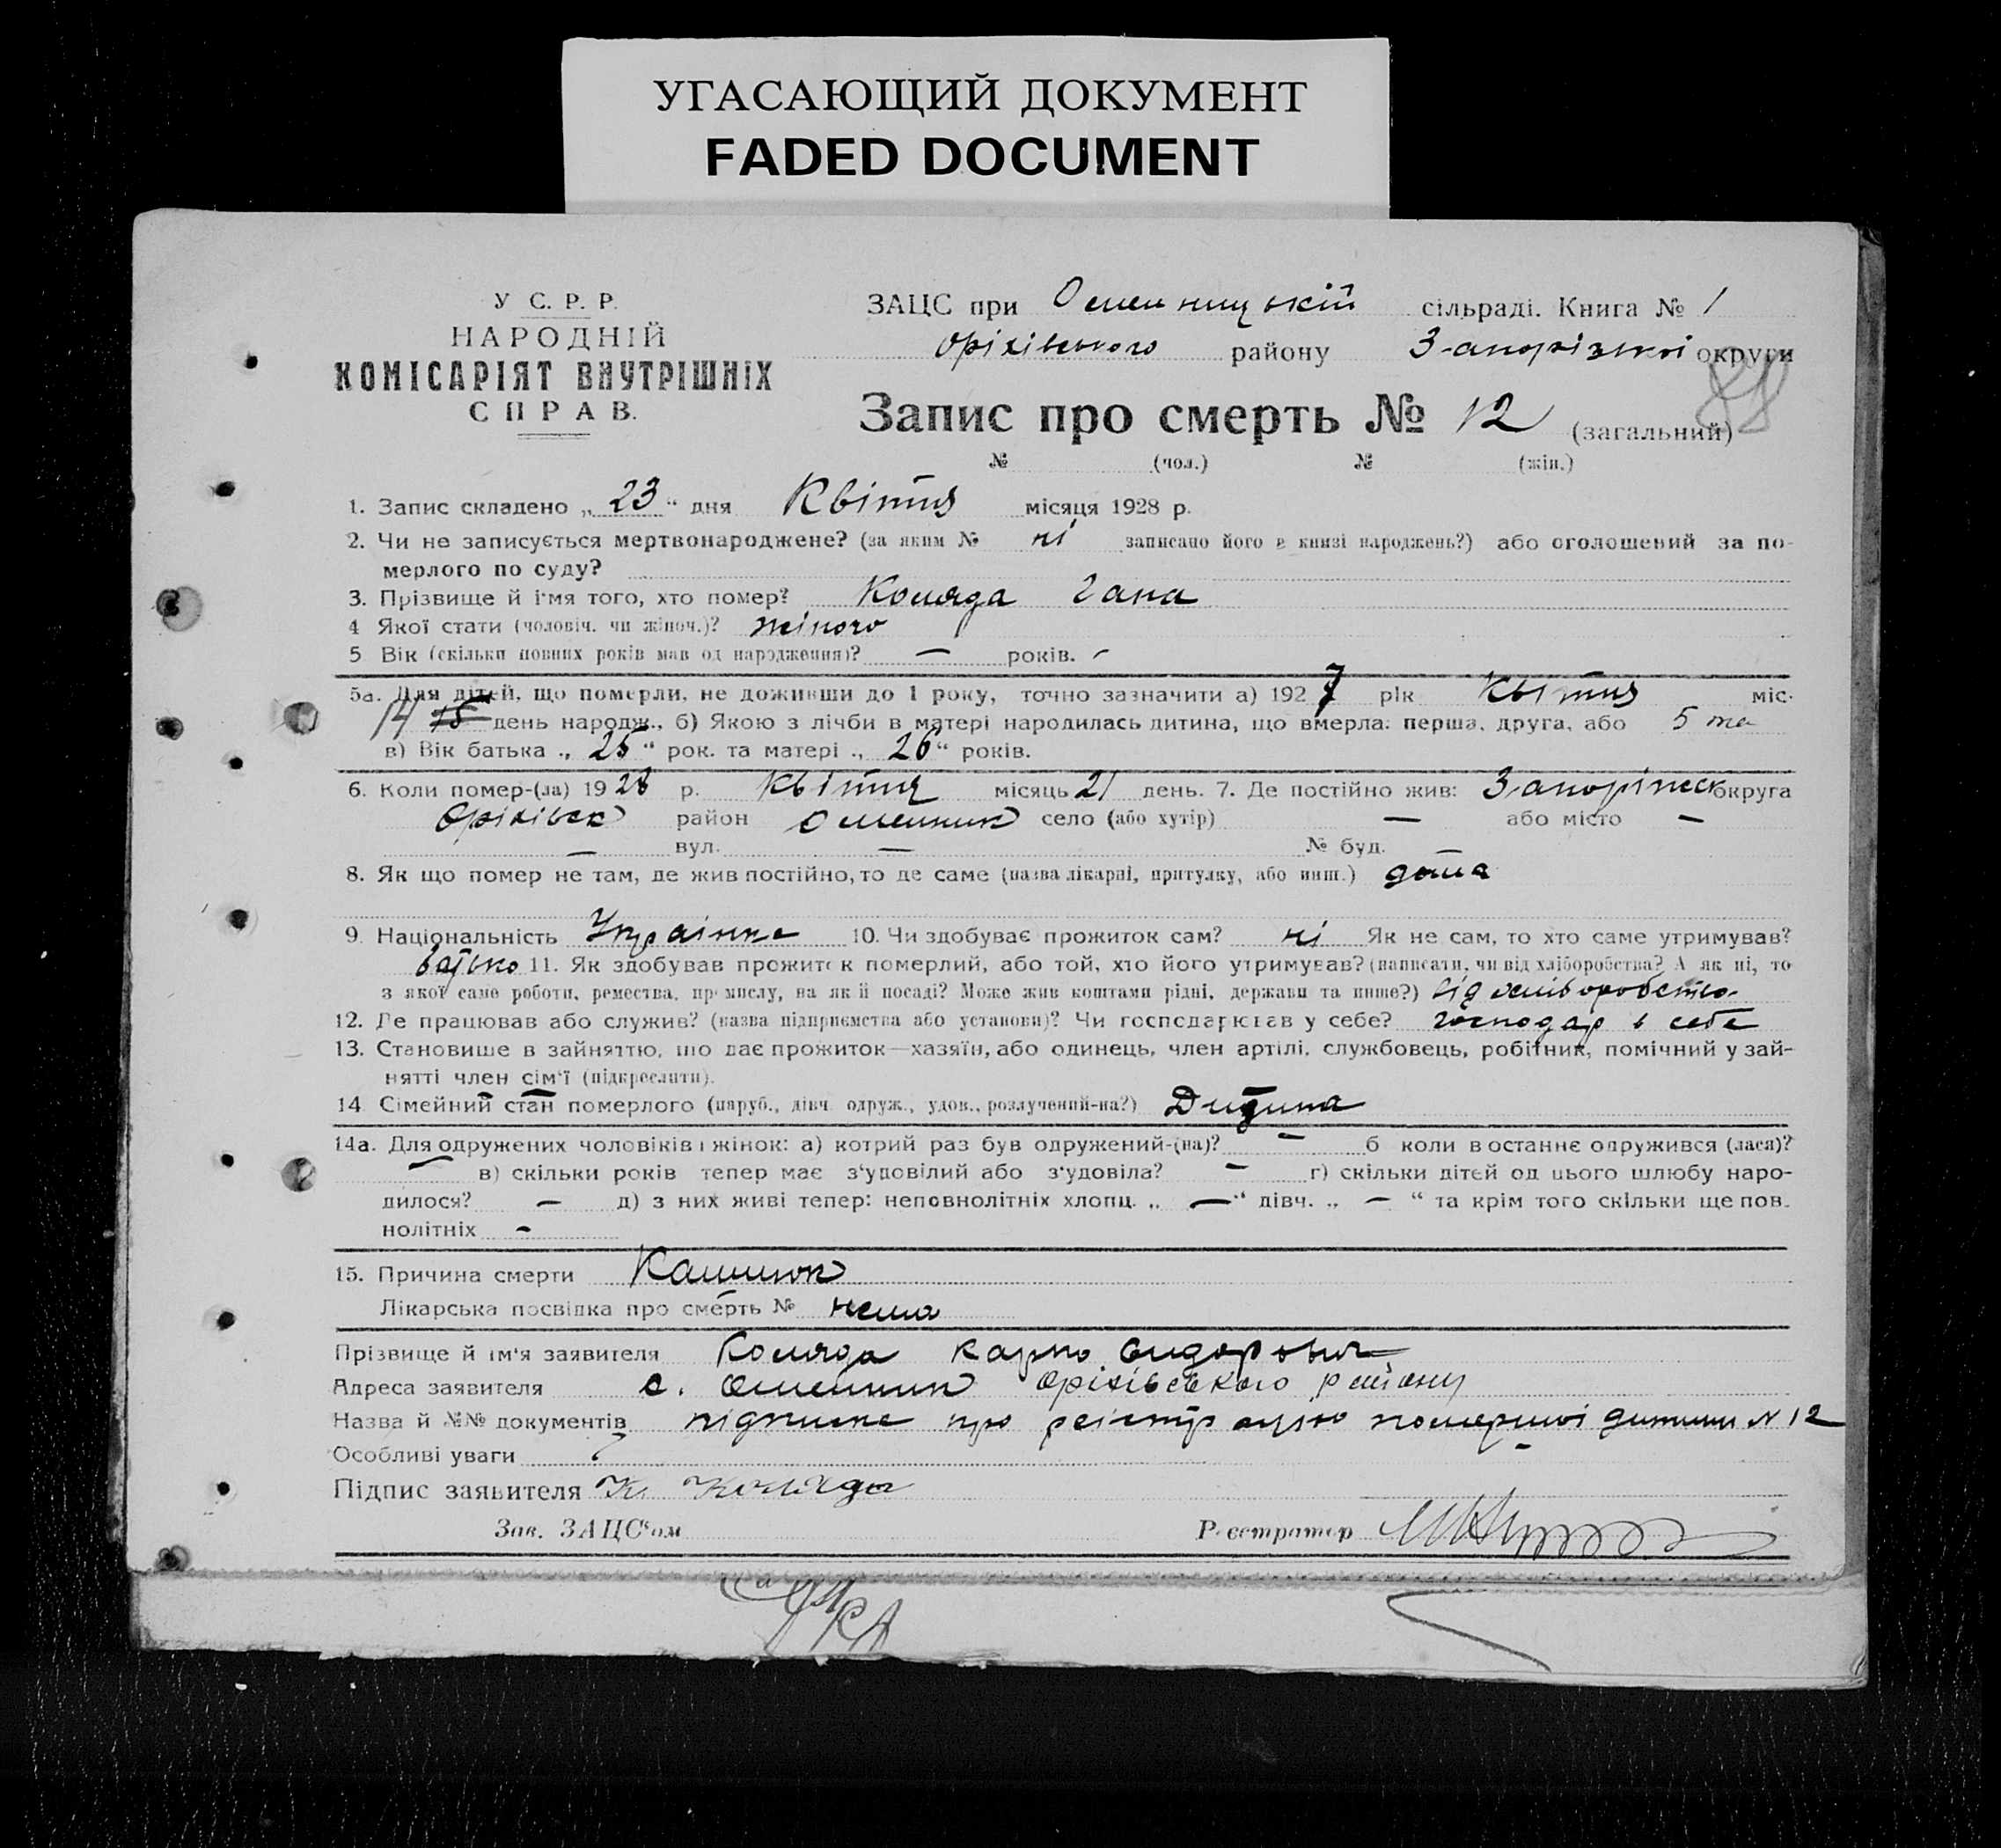 УГАСАЮЩИЙ ДОКУМЕНТ
FADED DOCUMENT
У С. Р. Р.
НАРОДНІЙ
КОМІСАРІЯТ ВНУТРІШНІХ
СПРАВ.
ЗАЦС при Омельницькій сільраді. Книга № 1
Оріхівського району Запорізької округи
88
Запис про смерть № 12 (загальний)
№ (чол.) № (жін.)
1. Запис складено „ 23 “ дня Квітня місяця 1928 р.
2. Чи не записується мертвонароджене? (за яким № ні записано його в книзі народжень?) або оголошений за по-
мерлого по суду?
3. Прізвище й ім'я того, хто помер? Коляда Гана
4 Якої стати (чоловіч. чи жіноч.)? жіного
5 Вік (скільки повних років мав од народження)? — років. -
5а. Для дітей, що померли, не доживши до 1 року, точно зазначити а) 1927 рік Квітня міс.
14 15 день народж., б) Якою з лічби в матері народилась дитина, що вмерла: перша, друга, або 5 та
в) Вік батька „ 25 “ рок. та матері „ 26 “ років.
6. Коли помер-(ла) 1928 р. Квітня місяць 21 день. 7. Де постійно жив: Запоріжск округа
Оріхівск район Омельник село (або хутір) — або місто —
— вул. — № буд. —
8. Як що помер не там, де жив постійно, то де саме (назва лікарні, притулку, або инш.) дома
9. Національність Українка 10. Чи здобуває прожиток сам? ні Як не сам, то хто саме утримував?
батько 11. Як здобував прожиток померлий, або той, хто його утримував? (написати, чи від хліборобства? А як ні, то
з якої саме роботи, ремества, промислу, на якій посаді? Може жив коштами рідні, держави та инше?) від хліборобства
12. Де працював або служив? (назва підприємства або установи)? Чи господарював у себе? господар в себе
13. Становище в зайняттю, що дає прожиток—хазяїн, або одинець, член артілі, службовець, робітник, помічний у зай-
нятті член сім'ї (підкреслити).
14 Сімейний стан померлого (паруб., дівч. одруж., удов., розлучений-на?) Дитина
14а. Для одружених чоловіків і жінок: а) котрий раз був одружений-(на)? — б коли в останнє одружився (лася)?
— в) скільки років тепер має з'удовілий або з'удовіла? — г) скільки дітей од цього шлюбу наро-
дилося? — д) з них живі тепер: неповнолітніх хлопц. „ — “ дівч. „ — “ та крім того скільки ще пов.
нолітніх -
15. Причина смерти Кашлюк
Лікарська посвідка про смерть № нема
Прізвище й ім'я заявителя Коляда Карпо Сидорович
Адреса заявителя с. Омельник Оріхівського району
Назва й №№ документів підписка про реістрацію помершої дитини № 12
Особливі уваги
Підпис заявителя К. Коляда
Зав. ЗАЦС'ом Реєстратор